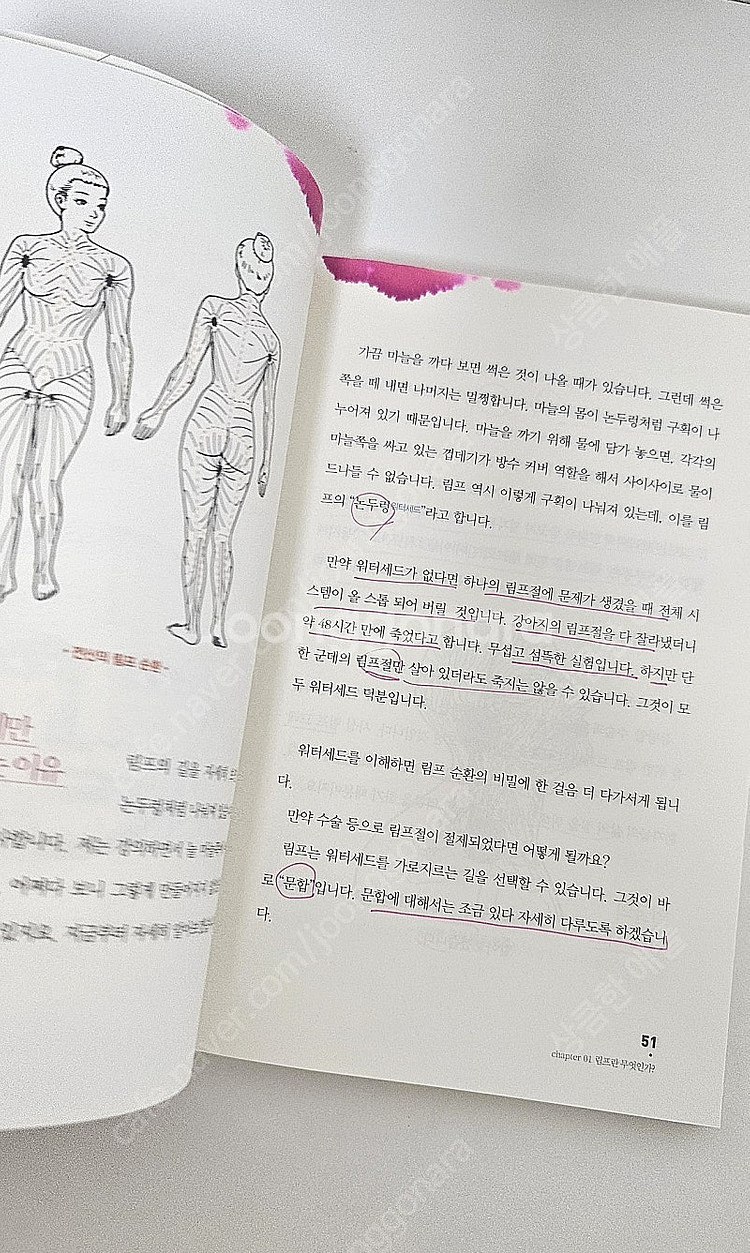 - 전신의 림프 순환-
림프의 길을 자세히
논두렁처럼 나눠져
저는 강의하면서 늘
어쩌다 보니 그렇게
지금부터 자세히
가끔 마늘을 까다 보면 썩은 것이 나올 때가 있습니다. 그런데 썩은
쪽을 떼 내면 나머지는 멀쩡합니다. 마늘의 몸이 논두렁처럼 구획이 나
누어져 있기 때문입니다. 마늘을 까기 위해 물에 담가 놓으면, 각각의
마늘쪽을 싸고 있는 껍데기가 방수 커버 역할을 해서 사이사이로 물이
드나들 수 없습니다. 림프 역시 이렇게 구획이 나눠져 있는데, 이를 림
프의 "논두렁워터세드"라고 합니다.
만약 워터세드가 없다면 하나의 림프절에 문제가 생겼을 때 전체 시
스템이 올 스톱 되어 버릴 것입니다. 강아지의 림프절을 다 잘라냈더니
약 48시간 만에 죽었다고 합니다. 무섭고 섬뜩한 실험입니다. 하지만 단
한 군데의 림프절만 살아 있더라도 죽지는 않을 수 있습니다. 그것이 모
두 워터세드 덕분입니다.
워터세드를 이해하면 림프 순환의 비밀에 한 걸음 더 다가서게 됩니
다.
만약 수술 등으로 림프절이 절제되었다면 어떻게 될까요?
림프는 워터세드를 가로지르는 길을 선택할 수 있습니다. 그것이 바
로 "문합"입니다. 문합에 대해서는 조금 있다 자세히 다루도록 하겠습니
다.
51
chapter 01 림프란 무엇인가?
상큼한 애플
상큼한 애플
cafe.naver.com/joonggonara